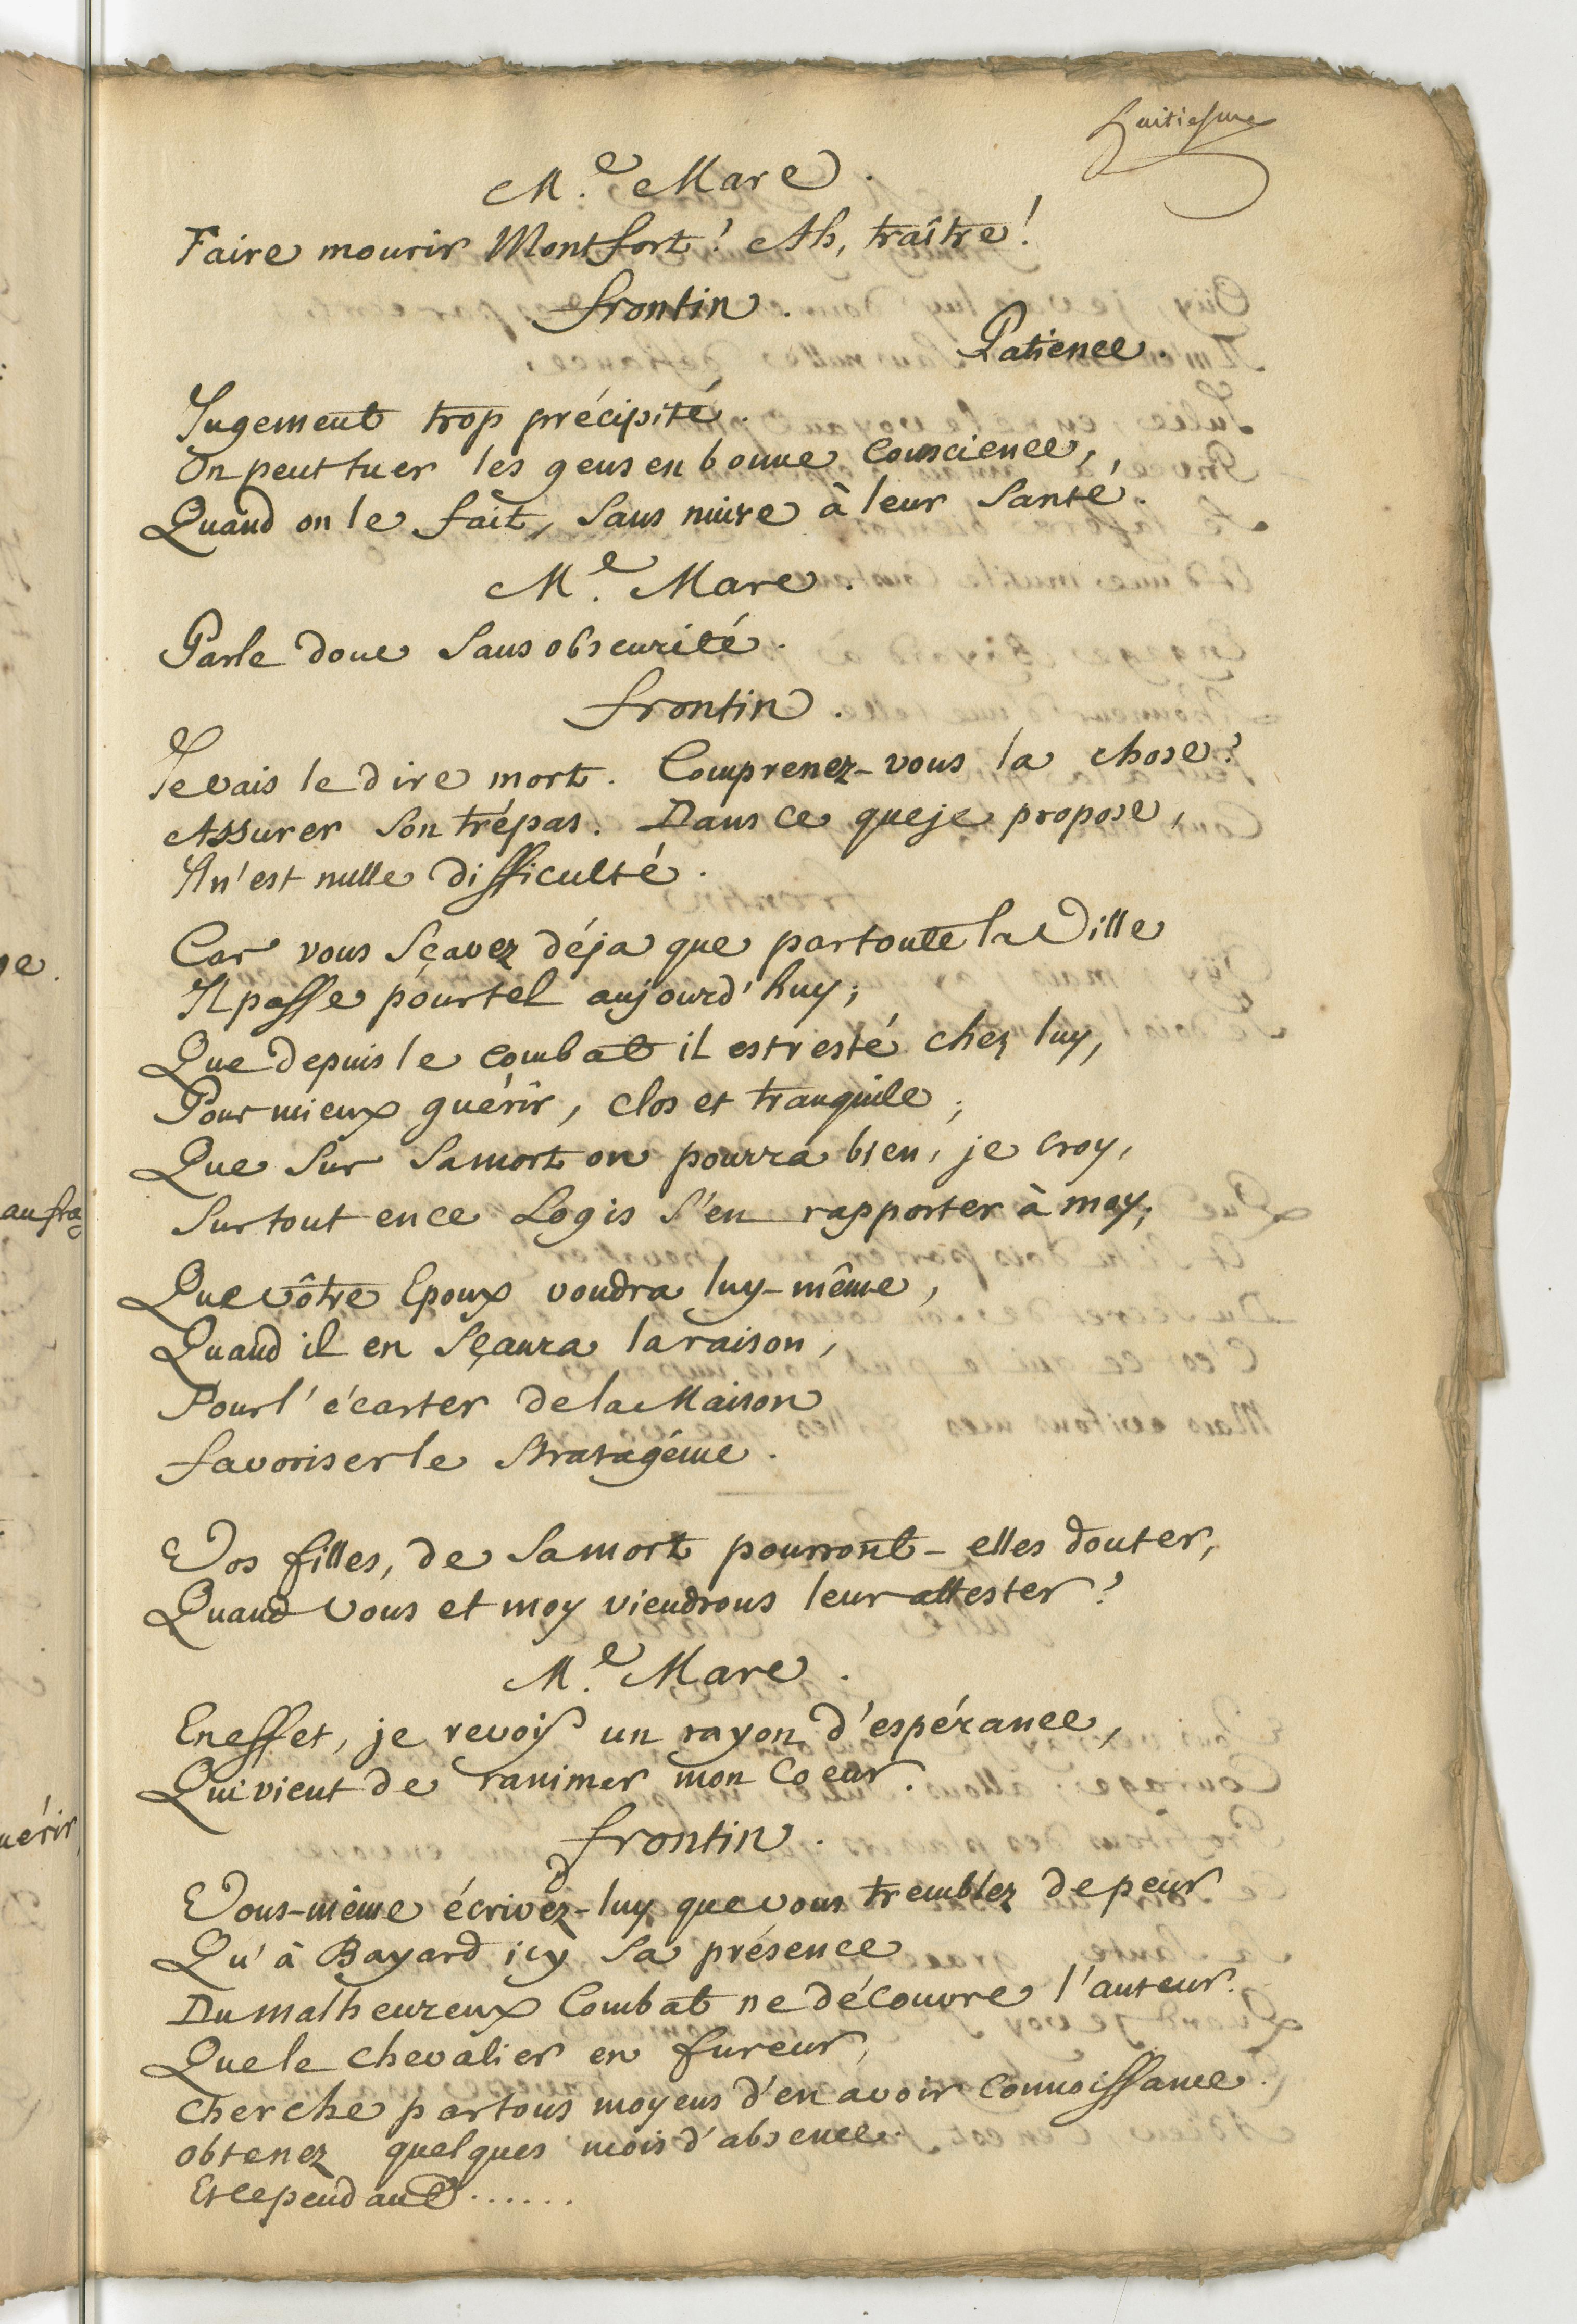 huitiesme
M.e Mare.
Faire mourir Montfort! Ah, traître!
frontin.
Patience.
Jugement trop précipité.
On peut tuer les gens en bonne Conscience,
Quand on le fait, sans nuire à leur Santé.
M.e Mare.
Parle donc Sans obscurité.
frontin.
Je vais le dire mort. Comprenez-vous la chose?
Assurer Son trépas. Dans ce que je propose,
Il n'est nulle difficulté.
Car vous Sçavez déja que par toute la Ville
Il passe pour tel aujourd'huy;
Que depuis le combat il est resté chez luy,
Pour mieux guérir, clos et tranquile;
Que Sur Sa mort on pourra bien, je croy,
Surtout en ce Logis S'en rapporter à moy;
Que vôtre Epoux voudra luy-même,
Quand il en Sçaura la raison,
Pour l'écarter de la Maison
favoriser le Stratagéme.
Vos filles, de Sa mort pourront-elles douter,
Quand Vous et moy viendrons leur attester?
M.e Mare.
En effet, je revois un rayon d'espérance,
Qui vient de ranimer mon Coeur.
frontin.
Vous-même écrivez-luy que vous tremblez de peur
Qu'à Bayard icy Sa présence
Du malheureux Combat ne découvre l'auteur.
Que le chevalier en fureur,
Cherche par tous moyens d'en avoir Connoissance.
obtenez quelques mois d'absence.
Et cependant......
ge.
au fra
uérir